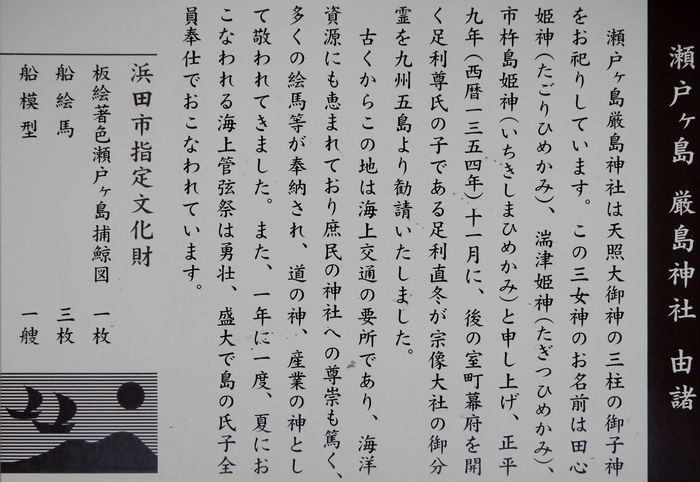 瀬戸ヶ島 厳島神社 由諸
瀬戸ヶ島厳島神社は天照大御神の三柱の御子神
をお祀りしています。この三女神のお名前は田心
姫神(たごりひめかみ)、湍津姫神(たぎつひめかみ)、
市杵島姫神(いちきしまひめかみ)と申し上げ、正平
九年(西暦一三五四年)十一月に、後の室町幕府を開
く足利尊氏の子である足利直冬が宗像大社の御分
霊を九州五島より勧請いたしました。
古くからこの地は海上交通の要所であり、海洋
資源にも恵まれており庶民の神社への尊崇も篤く、
多くの絵馬等が奉納され、道の神、産業の神とし
て敬われてきました。また、一年に一度、夏にお
こなわれる海上管弦祭は勇壮、盛大で島の氏子全
員奉仕でおこなわれています。
浜田市指定文化財
板絵著色瀬戸ヶ島捕鯨図 一枚
船絵馬 三枚
船模型 一艘